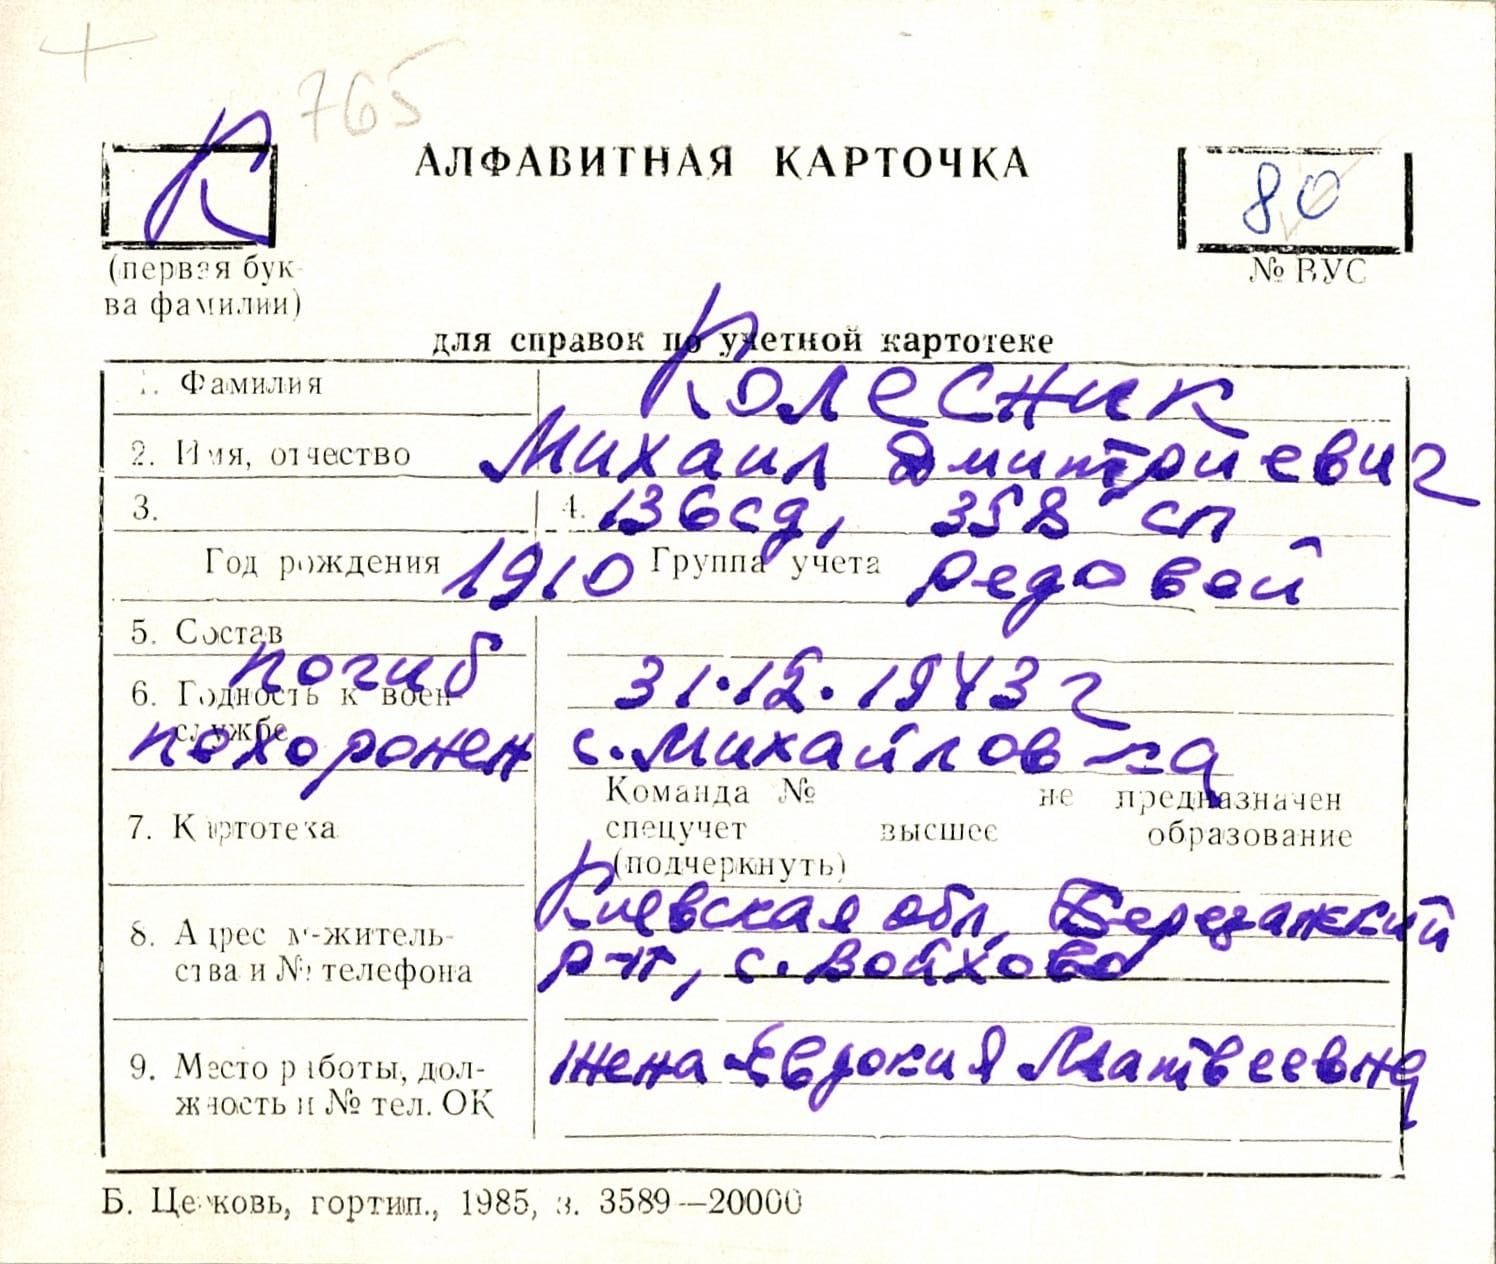 765
К
АЛФАВИТНАЯ КАРТОЧКА
80
(первая бук-
ва фамилии)
№ ВУС
для справок по учетной картотеке
1. Фамилия Колесник
2. Имя, отчество Михаил Дмитриевич
3. 4. 136 сд, 358 сп
Год рождения 1910 Группа учета редовой
5. Состав
погиб 31.12.1943 г
6. Годность к воен-
службе
похоронен с. Михайловка
Команда № не предназначен
7. Картотека спецучет высшее образование
(подчеркнуть)
Киевская обл, Березанский
8. Адрес м-житель-
ства и № телефона р-н, с. Войково
9. Место работы, дол- жена Евдокия Матвеевна
жность и № тел. ОК
Б. Церковь, гортип., 1985, з. 3589—20000